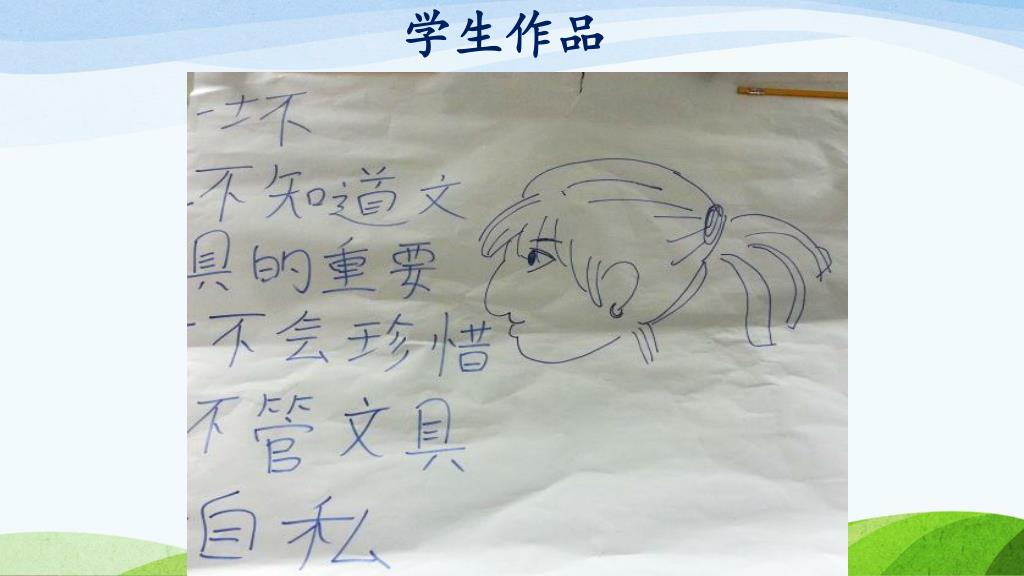 学生作品
-坏
-不知道文
具的重要
-不会珍惜
不管文具
-自私